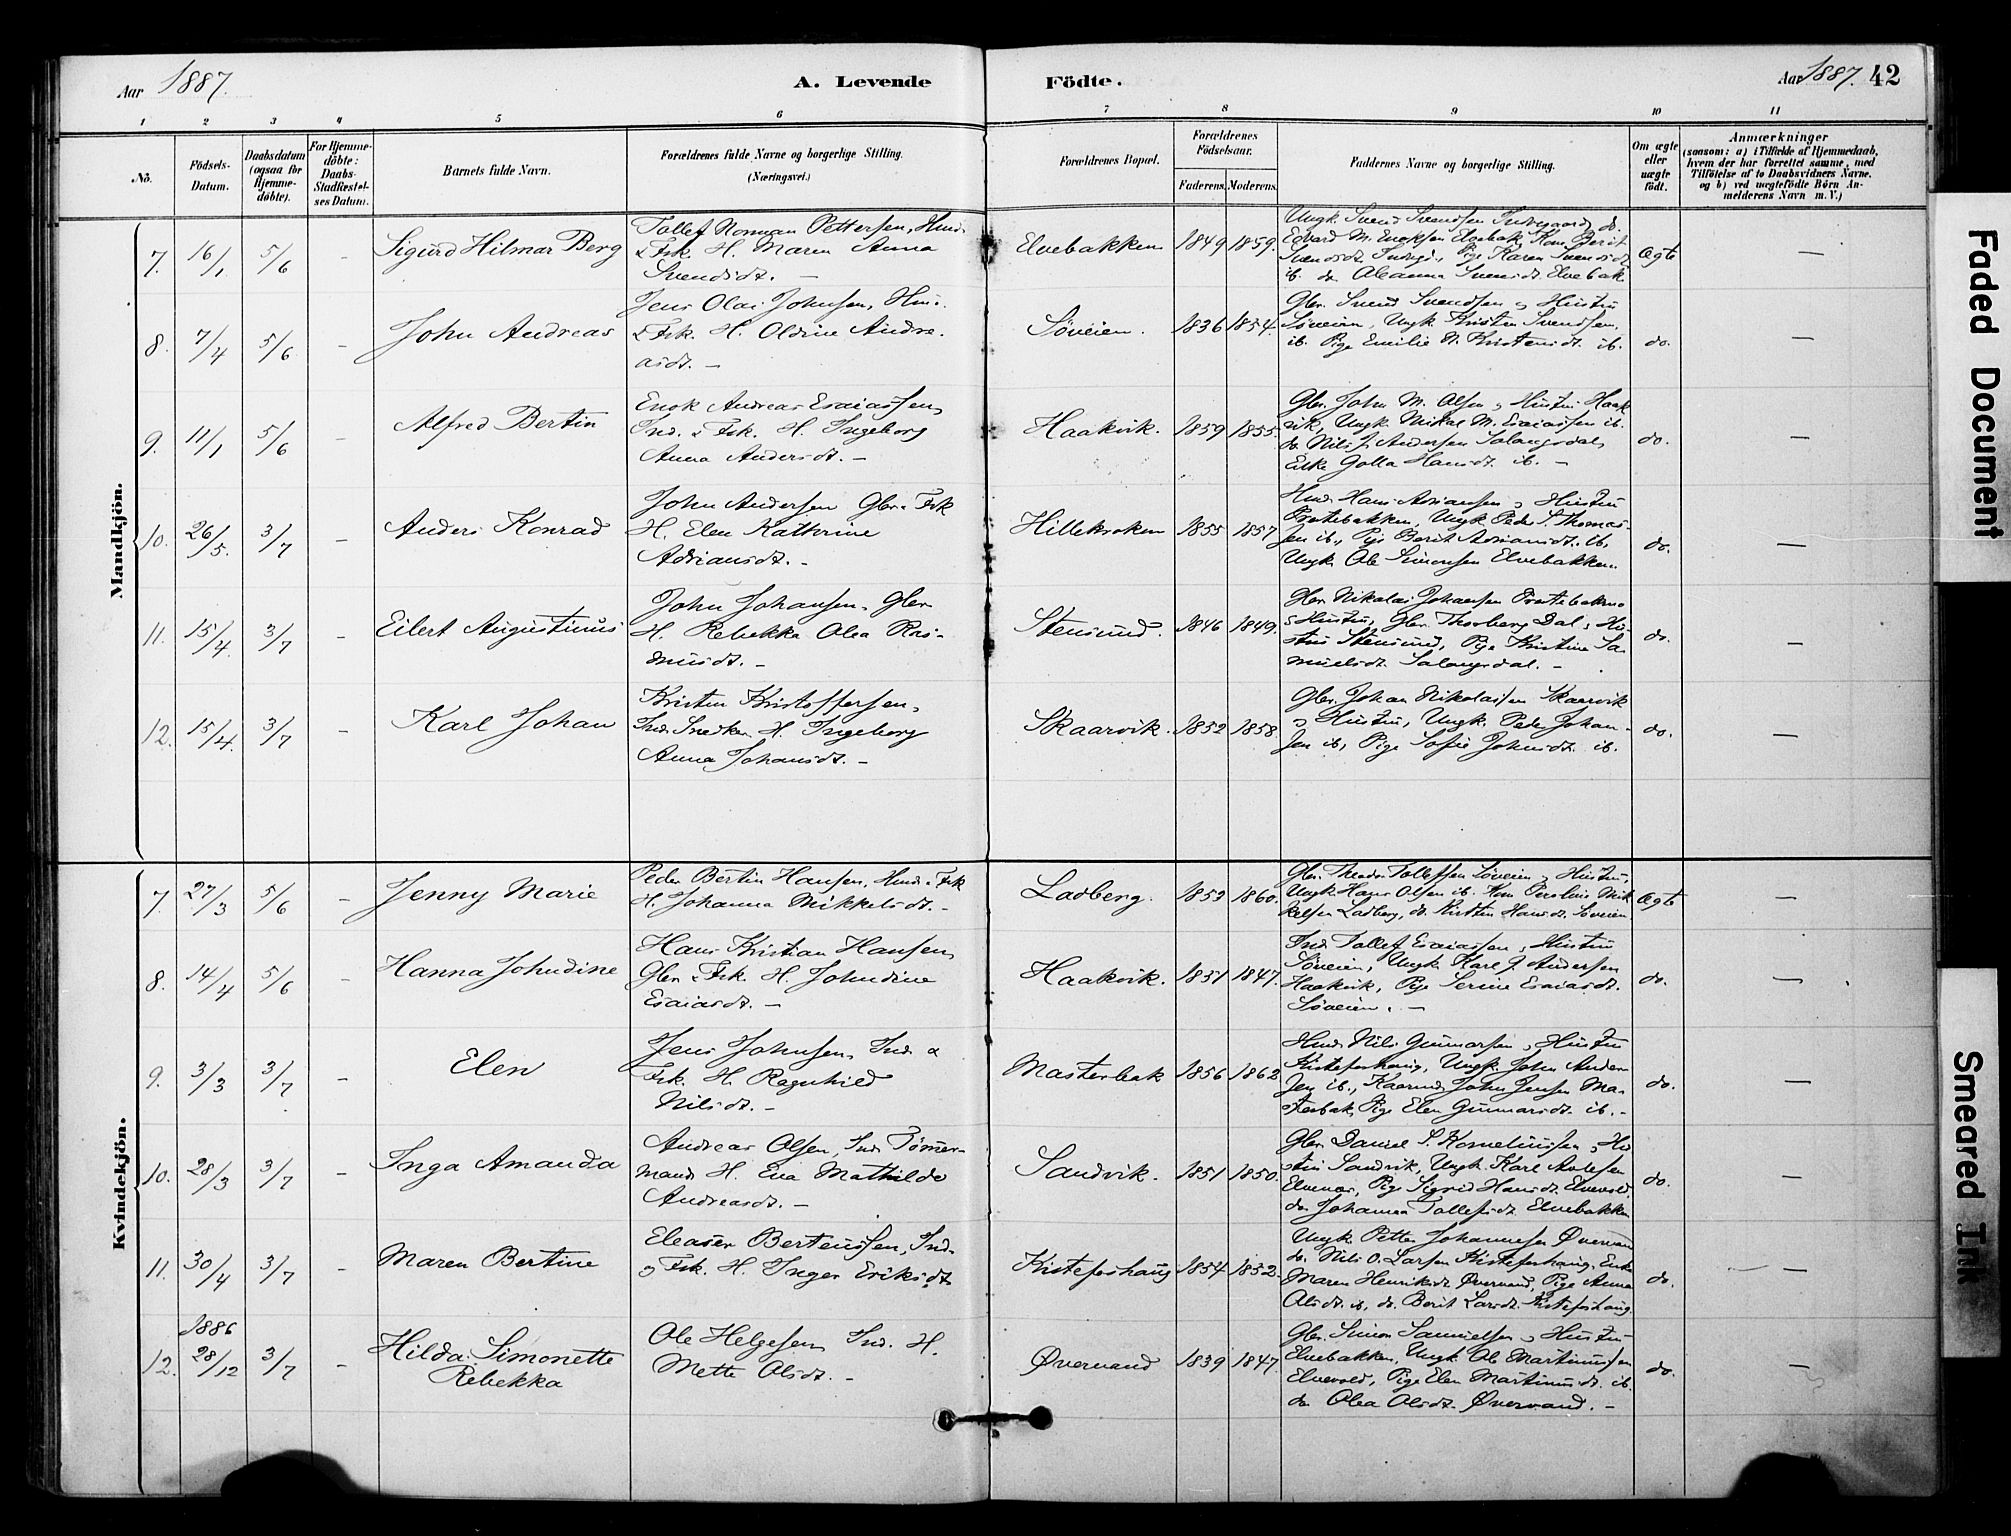 Aar 1887.
A. Levende
Födte.
Aar 1887. 42
1 2 3 4 5 6 7 8 9 10 11
No.
Födsels-Datum.
Daabsdatum (ogsaa for Hjemme-döbte).
For Hjemme-döbte: Daabs-Stadfæstel-ses Datum.
Barnets fulde Navn.
Forældrenes fulde Navne og borgerlige Stilling.
(Næringsvei.)
Forældrenes Bopæl.
Forældrenes Födselsaar.
Faderens. Moderens.
Faddernes Navne og borgerlige Stilling.
Om ægte eller uægte født.
Anmærkninger
(saasom: a) i Tilfælde af Hjemmedaab, hvem der har forrettet samme, med Tilföielse af to Daabsvidners Navne, og b) ved uægtefödte Börn An-melderens Navn m. V.)
Mandkjön.
7. 16/1 5/6 - Sigurd Hilmar Berg
Tollef Norman Pettersen, Husm.
& Fsk. H. Maren Anna
Svendsdt. -
Elvebakken 1849 1859.
Ungk. Svend Svendsen
Edvard M. Enoksen Elvebak, Kone Berit
Svendsdt. Pige Karen Svendsdt
ib. do Oleanna Svensdt. Elvebak
Ægte -
8. 7/4 5/6 - John Andreas
Jens Olai Johnsen, Hm.
& Fsk. H. Oldine Andre-
asdt. -
Söveien. 1836 1854.
Gbr. Svend Svendsen & Hustru
Söveien, Ungk. Kristen Svendsen
ib. Pige Emilie N. Kristensdt. ib.
do. -
9. 11/1 5/6 - Alfred Bertin
Enok Andreas Esaiassen,
Ind. & Fsk. H. Ingeborg
Anna Andersdt. -
Haakvik. 1859 1855.
Gbr. John M. Olsen & Hustru Haak
vik, Ungk. Mikal M. Esaiassen ib.
do Nils J. Andersen Salangsdal,
Enke Golla Hansdt. ib. -
do. -
10. 26/5. 3/7 - Anders Konrad
John Andersen Gbr. & Fsk
H. Elen Kathrine
Adriansdt. -
Hillekroken 1855 1857
Husm. Hans Adriansen & Hustru
Pratebakken, Ungk. Peder S. Thomas-
sen ib., Pige Berit Adriansdt. ib,
Ungk. Ole Simonsen Elvebakken.
do. -
11. 15/4. 3/7 - Eilert Augustinus
John Johansen, Gbr.
H. Rebekka Olea Ras-
musdt. -
Stensund. 1846 1849.
Gbr. Nikolai Johansen Pratebakken
& Hustru, Gbr. Thorberg Dal & Hu-
stru Stensund, Pige Kristine Sa-
muelsdt. Salangsdal. -
do. -
12. 15/4. 3/7 - Karl Johan
Kristen Kristoffersen,
Ind. Snedker H. Ingeborg
Anna Johansdt. -
Skaarvik. 1852 1858.
Gbr. Johan Nikolaisen Skaarvik
& Hustru, Ungk. Peder Johan-
sen ib, Pige Sofie Johnsdt. ib.
do. -
Kvindekjön.
7. 27/3 5/6 - Jenny Marie
Peder Bertin Hansen, Husm. & Fsk
H. Johanna Mikkelsdt. -
Ladberg. 1853 1860.
Gbr. Theodor Tollefsen Söveien & Hustru,
Ungk. Hans Olsen ib. Kone Mik
kelsen Ladberg, do. Kirsten Hansdt. Söveien
Ægte -
8. 14/4 5/6 - Hanna Johndine
Hans Kristian Hansen,
Gbr. & Fsk. H. Johndine
Esaiasdt. -
Haakvik. 1851 1847.
Ind. Tollef Esaiassen & Hustru
Söveien, Ungk. Karl J. Andersen
Haakvik, Pige Serine Esaiasdt.
Söveien. -
do. -
9. 3/3 3/7 - Elen
Jens Johnsen, Ind. &
Fsk. H. Ragnhild
Nilsdt. -
Masterbak 1856 1862
Husm. Nils Gunnarsen & Hustru
Kistefoshaug, Ungk. John Ander-
sen ib., John Jensen Ma-
sterbak, Pige Elen Gunnarsdt. ib. -
do. -
10. 28/3 3/7 - Inga Amanda
Andreas Olsen, Ind. Tömer-
mand H. Eva Mathilde
Andreasdt. -
Sandvik. 1851 1850.
Gbr. Daniel P. Korneliussen & Hu-
stru Sandvik, Ungk. Karl
Elvenes, Pige Sigrid Hansdt. Elvevold,
do Johanna Tollefsdt. Elvebakken
do. -
11. 30/4 3/7 - Maren Bertine
Eleaser Berteussen, Ind.
& Fsk. H. Inger Eriksdt
Kistefoshaug 1854 1852.
Ungk. Petter Johannesen Øvervand
do. Nils O. Larsen Kistefoshaug, Enke
Maren Henriksdt. Øvervand, Pige Anna
Olsdt. ib, do. Berit Larsdt. Kistefoshaug
do. -
1886
12. 28/12 3/7 - Hilda Simonette
Rebekka
Ole Helgesen, Ind. H.
Mette Olsdt. -
Øvervand 1839 1847.
Gbr. Simon Samuelsen & Hustru
Elvebakken, Ungk. Ole Martinussen
Elvevold, Pige Elen Martinusdt. ib.
do Olea Olsdt. Øvervand. -
do. -
Faded Document
Smeared Ink